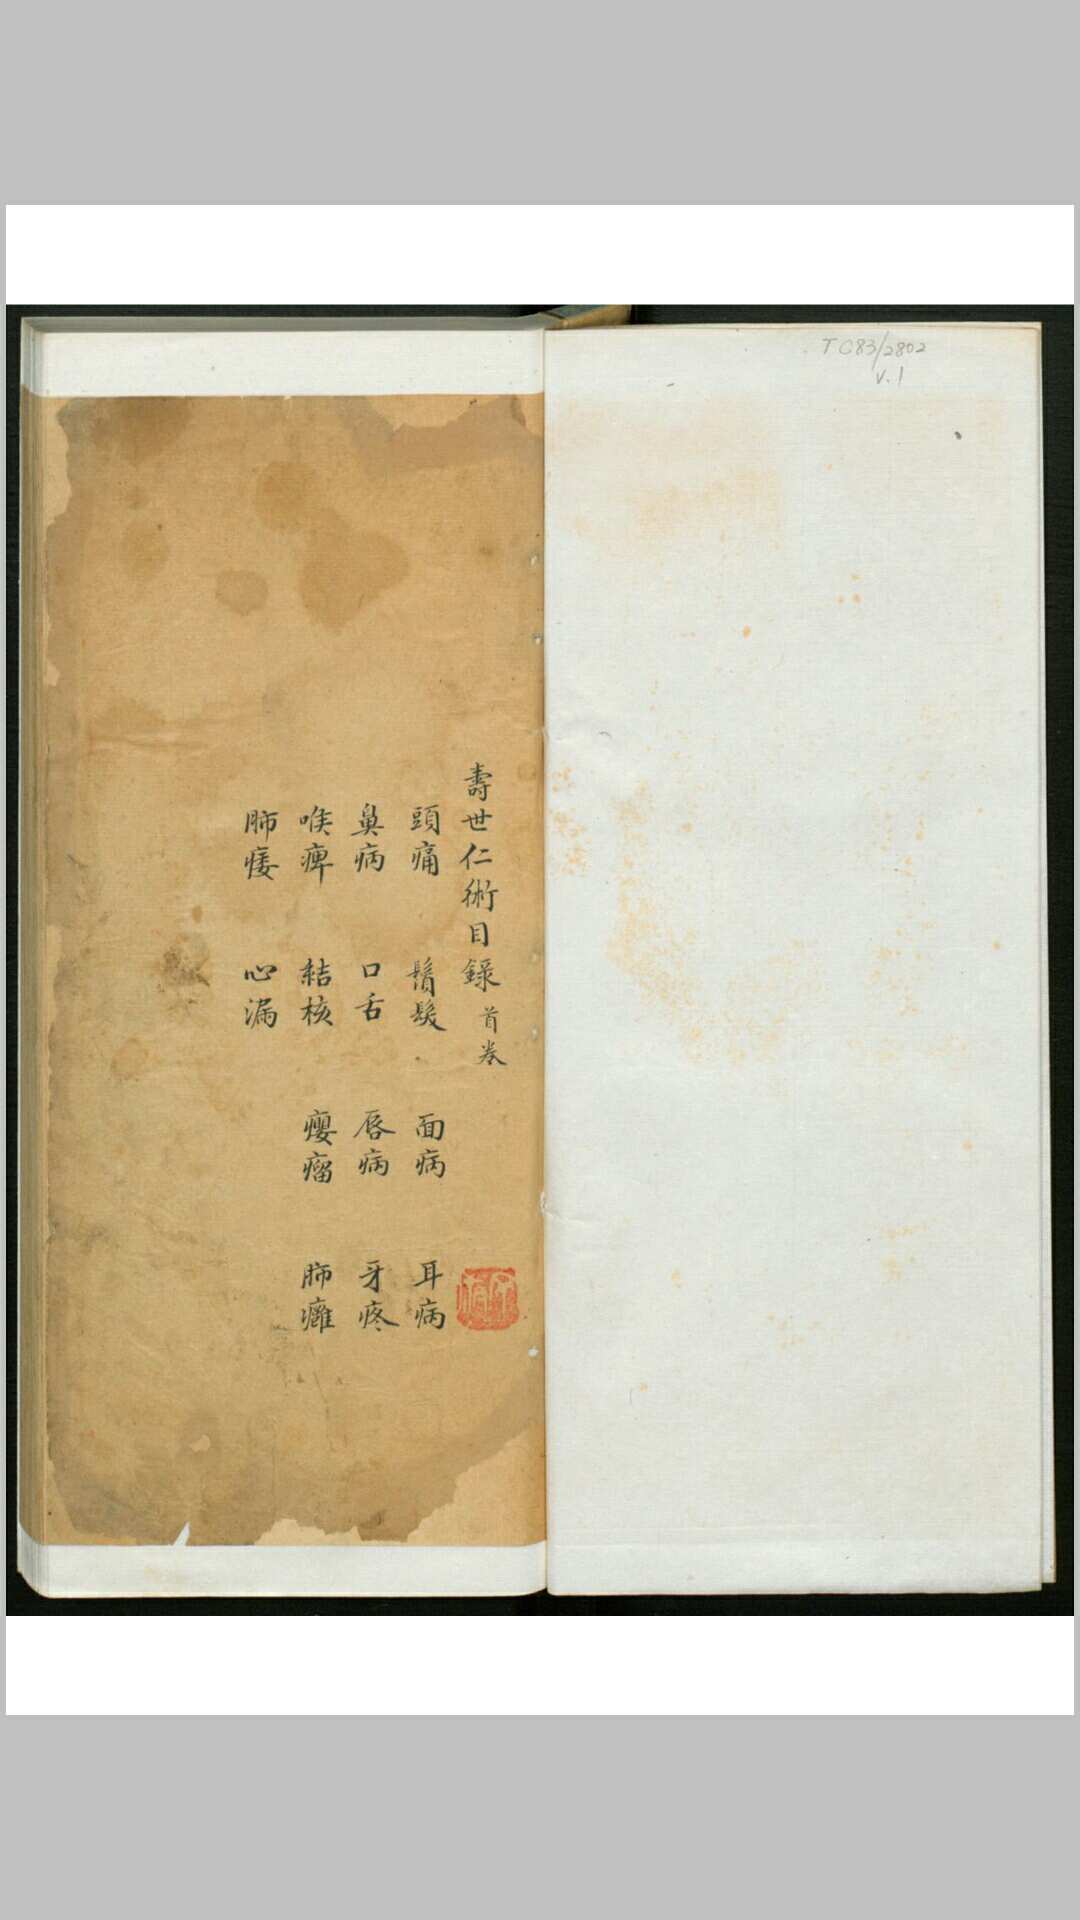 TC83/2802
v.1
壽世仁術目錄 首卷
頭痛 鬚髮 面病 耳病
鼻病 口舌 唇病 牙疼
喉痺 結核 癭瘤 肺癰
肺痿 心漏